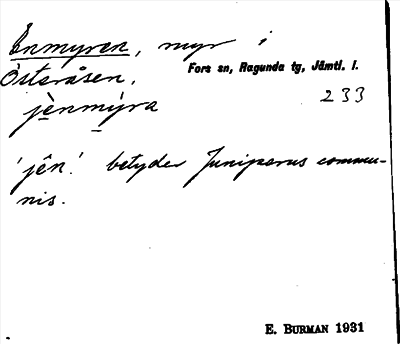 Enmyren, myr i
Österåsen. Fors sn, Ragunda tg, Jämtl. l.
jènmýra 233
'jên'. betyder Juniperus commu-
nis.
E. BURMAN 1931